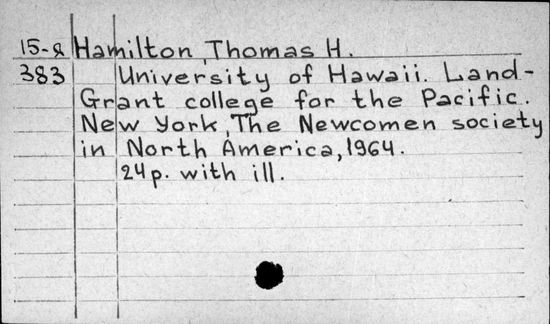 15-8 Hamilton, Thomas H.
383 University of Hawaii. Land-
Grant college for the Pacific.
New York, The Newcomen society
in North America, 1964.
24p. with ill.